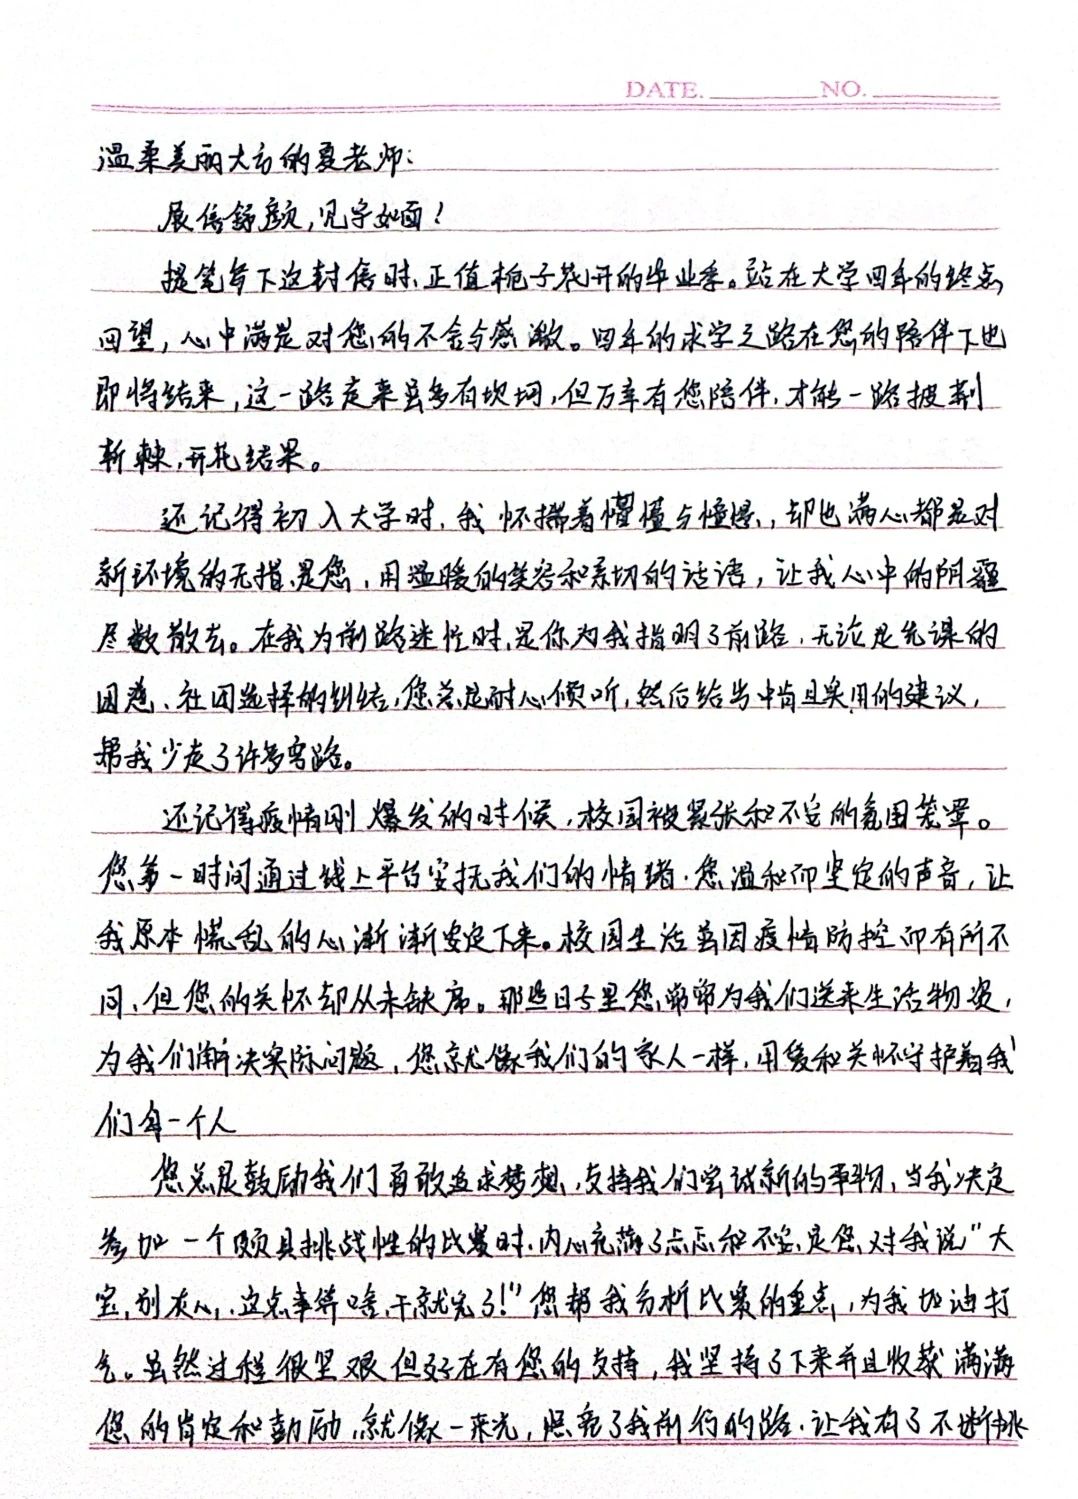 DATE. NO.
温柔美丽大方的夏老师：
展信舒颜，见字如面！
提笔写下这封信时，正值栀子花开的毕业季。站在大学四年的终点
回望，心中满是对您的不舍与感激。四年的求学之路在您的陪伴下也
即将结束，这一路走来虽多有坎坷，但万幸有您陪伴，才能一路披荆
斩棘，开花结果。
还记得初入大学时，我怀揣着懵懂与憧憬，却也满心都是对
新环境的无措，是您，用温暖的笑容和亲切的话语，让我心中的阴霾
尽数散去。在我为前路迷忙时，是你为我指明了前路，无论是先课的
困惑、社团选择的纠结，您总是耐心倾听，然后给出中肯且实用的建议，
帮我少走了许多弯路。
还记得疫情刚爆发的时候，校园被紧张和不安的氛围笼罩。
您第一时间通过线上平台安抚我们的情绪，您温和而坚定的声音，让
我原本慌乱的心渐渐安定下来。校园生活虽因疫情防控而有所不
同，但您的关怀却从未缺席。那些日子里您常常为我们送来生活物资，
为我们解决实际问题，您就像我们的家人一样，用爱和关怀守护着我
们每一个人
您总是鼓励我们勇敢追求梦想，支持我们尝试新的事物，当我决定
参加一个颇具挑战性的比赛时，内心充满了忐忑和不安，是您，对我说"大
宝，别灰心，这点事算啥，干就完了！"您帮我分析比赛的重点，为我加油打
气。虽然过程很坚艰但好在有您的支持，我坚持了下来并且收获满满
您的肯定和勉励，就像一束光，照亮了我前行的路，让我有了不断挑